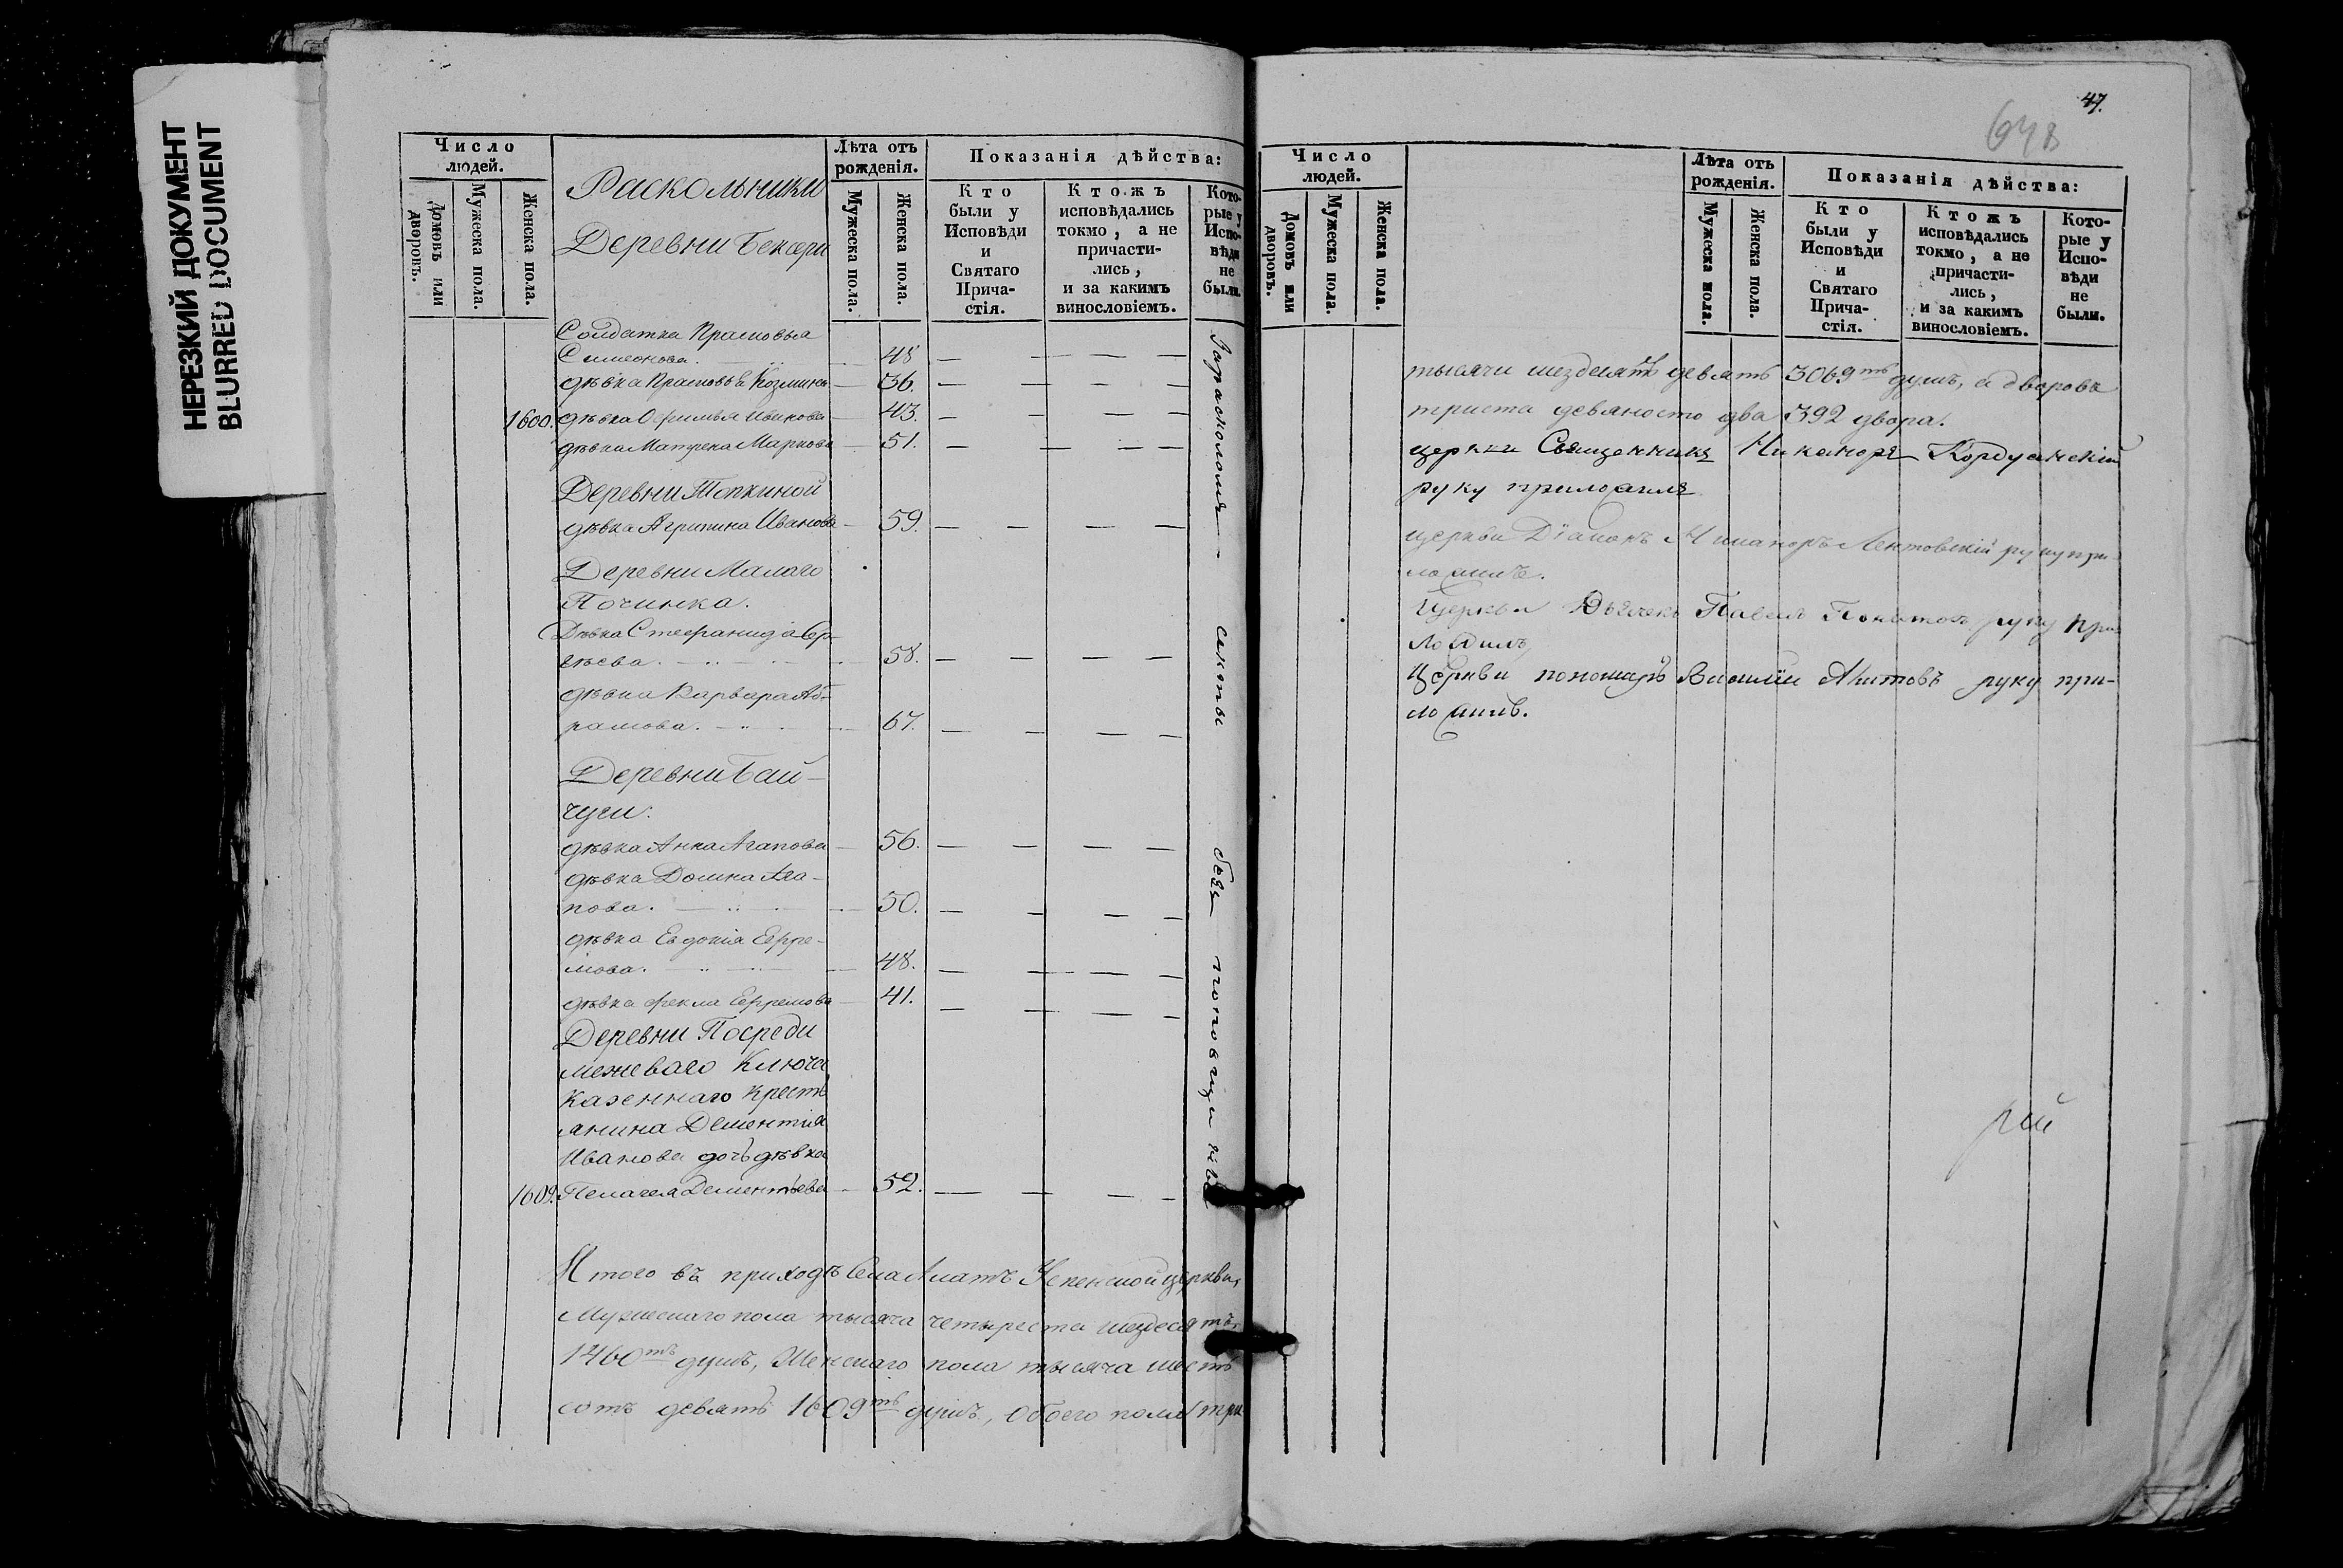 НЕРЕЗКИЙ ДОКУМЕНТ
BLURRED DOCUMENT
Число людей.
Домовъ или дворовъ.
Мужеска пола.
Женска пола.
Раскольники
Деревни
Лѣта отъ рожденія.
Мужеска пола.
Женска пола.
Показанія дѣйства:
Кто были у Исповѣди и Святаго Прича-стія.
Ктожъ исповѣдались токмо, а не причасти-лись, и за какимъ винословіемъ.
Кото-рые у Испо-вѣди не были.
Солдатка Прасковья
Симеонова. 48
дѣвка Прасковья Козмина 36.
1600. дѣвка 43.
дѣвка Матрена Маркова 51.
Деревни Топкиной
дѣвка Агрипина Иванова 59.
Деревни Малаго
Починка.
Дѣвка Стефанида Сер-
гѣева. 58.
дѣвка Варвара Аб-
рамова. 67.
Деревни Бай-
чуги.
дѣвка Анна Агапова 56.
дѣвка Домна Ага-
пова. 50.
дѣвка Евдокія Ефре-
мова. 48.
дѣвка Фекла Ефремова 41.
Деревни Посреди
межеваго Ключа
Казеннаго Кресть
янина Дементія
Иванова дочь дѣвка
1609. Пелагея Дементьева 52.
За расколомъ секты безъ поповщины
Итого въ приходѣ Села Алатъ церкви,
Мужескаго пола тысяча четыреста шездесятъ,
1460тъ душъ, Женскаго пола тысяча шесть
сотъ девять 1609ть душъ, Обоего пола три
47.
648
Число людей.
Домовъ или дворовъ.
Мужеска пола.
Женска пола.
Лѣта отъ рожденія.
Мужеска пола.
Женска пола.
Показанія дѣйства:
Кто были у Исповѣди и Святаго Прича-стія.
Ктожъ исповѣдались токмо, а не причасти-лись, и за какимъ винословіемъ.
Кото-рые у Испо-вѣди не были.
тысячи шездесятъ девять 3069ть душъ, а дворовъ
триста девяносто два 392 двора.
церкви Священникъ Никаноръ Кордуанскій
руку приложилъ
церкви Діаконъ руку при-
ложилъ.
Церкви Дьячекъ Павелъ руку при-
ложилъ,
Церкви пономарь Василій руку при-
ложилъ.